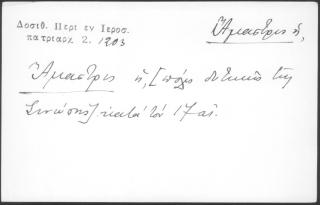 Δοσιθ. Περι εν Ιεροσ.
πατριαρχ 2. 1203
Ἄμαστρις ἡ,
Ἄμαστρις ἡ, [πόλις δυτικῶς τῆς
Σινώπης] κατὰ τὸν 17 αἰ.